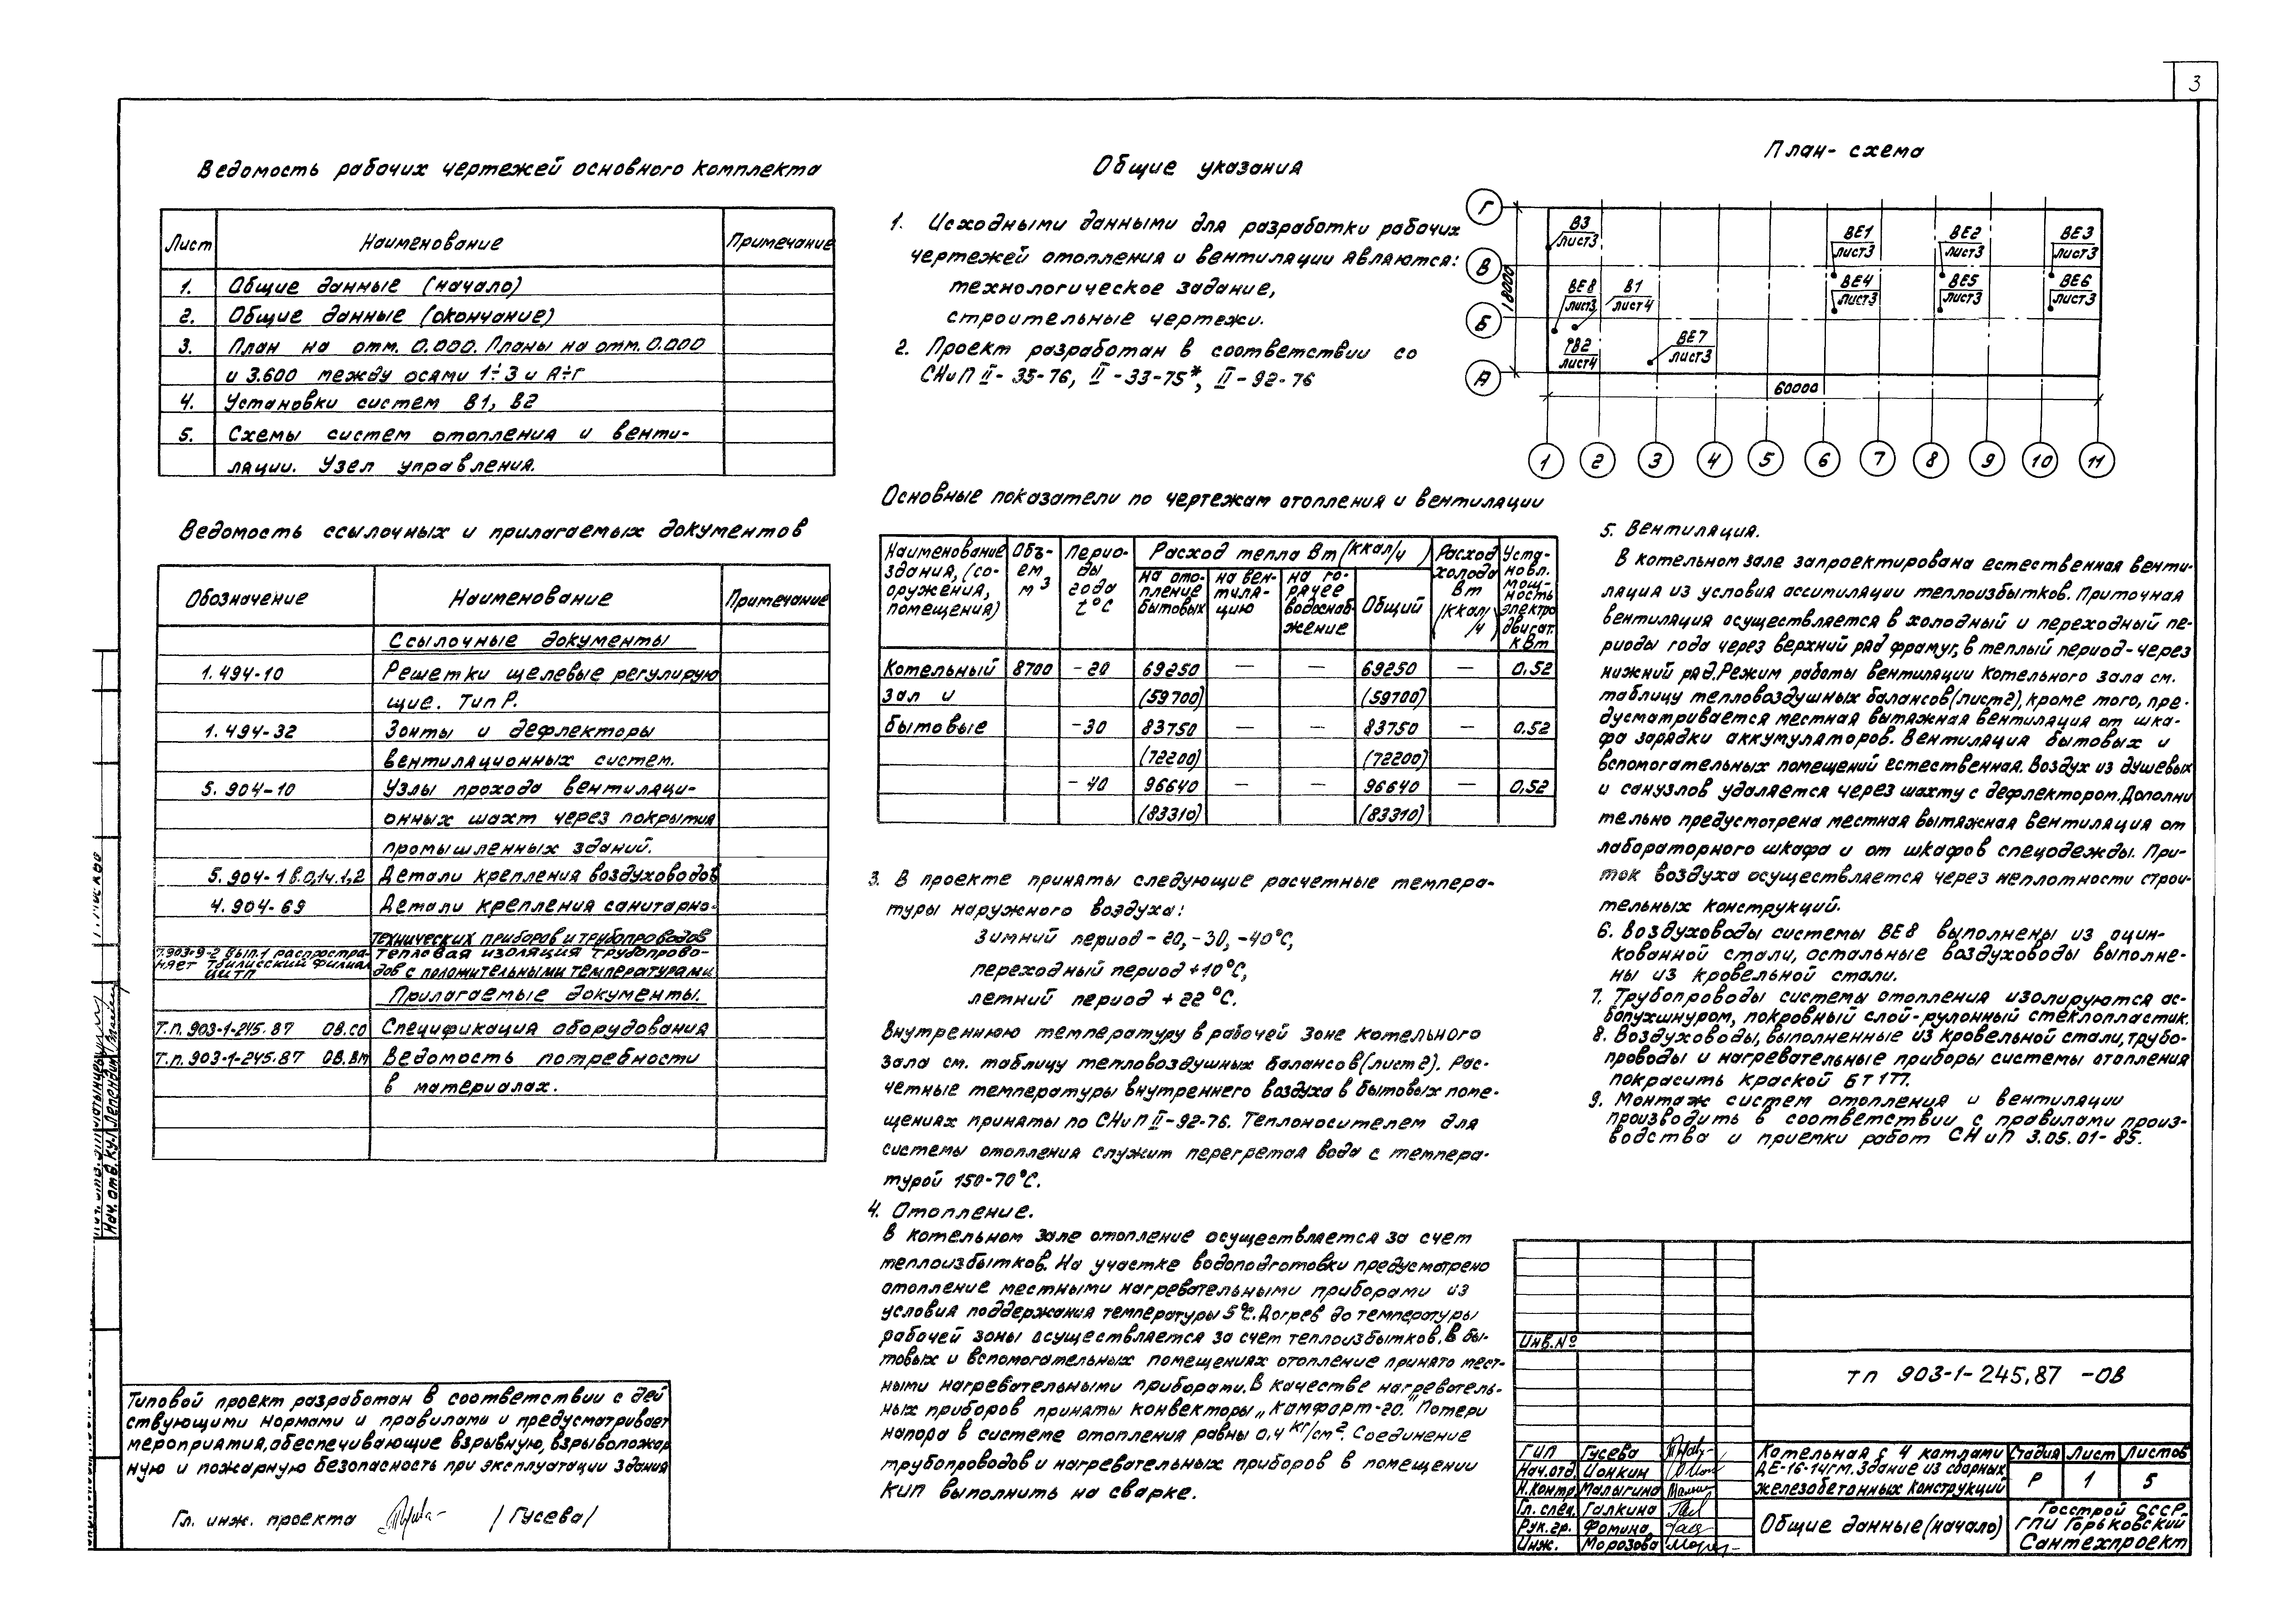 3
Ведомость рабочих чертежей основного комплекта
Лист Наименование Примечание
1. Общие данные (начало)
2. Общие данные (окончание)
3. План на отм. 0.000. Планы на отм. 0.000
и 3.600 между осями 1÷3 и А÷Г
4. Установки систем В1, В2
5. Схемы систем отопления и венти-
ляции. Узел управления.
Ведомость ссылочных и прилагаемых документов
Обозначение Наименование Примечание
Ссылочные документы
1.494-10 Решетки щелевые регулирую
щие. Тип Р.
1.494-32 Зонты и дефлекторы
вентиляционных систем.
5.904-10 Узлы прохода вентиляци-
онных шахт через покрытия
промышленных зданий.
5.904-1 в.0,1ч.1,2 Детали крепления воздуховодов
4.904-69 Детали крепления санитарно-
технических приборов и трубопроводов
7.903-9-2 вып.1 распростра- Тепловая изоляция трубопрово-
няет Тбилисский филиал дов с положительными температурами
ЦИТП
Прилагаемые документы.
Т.п. 903-1-245.87 ОВ.СО Спецификация оборудования
Т.п. 903-1-245.87 ОВ.ВМ Ведомость потребности
в материалах.
Типовой проект разработан в соответствии с дей
ствующими нормами и правилами и предусматривает
мероприятия, обеспечивающие взрывную, взрывопожар
ную и пожарную безопасность при эксплуатации здания
Гл. инж. проекта /Гусева/
Нач. отд. КУ. Лепендин
Общие указания
1. Исходными данными для разработки рабочих
чертежей отопления и вентиляции являются:
технологическое задание,
строительные чертежи.
2. Проект разработан в соответствии со
СНиП II-35-76, II-33-75*, II-92-76
Основные показатели по чертежам отопления и вентиляции
Наименование здания, (со- оружения, помещения) Объ- ем м3 Перио- ды года t°С Расход тепла Вт (ккал/ч) Расход холода Вт (ккал/ч) Уста- новл. мощ- ность электро двигат. кВт
на ото- пление бытовых на вен- тиля- цию на го- рячее водоснаб- жение Общий
Котельный 8700 -20 69250 — — 69250 — 0.52
зал и (59700) (59700)
бытовые -30 83750 — — 83750 — 0.52
(72200) (72200)
-40 96640 — — 96640 — 0.52
(83310) (83310)
3. В проекте приняты следующие расчетные темпера-
туры наружного воздуха:
Зимний период -20, -30, -40°С,
переходный период +10°С,
летний период +22°С.
Внутреннюю температуру в рабочей зоне котельного
зала см. таблицу тепловоздушных балансов (лист 2). Рас-
четные температуры внутреннего воздуха в бытовых поме-
щениях приняты по СНиП II-92-76. Теплоносителем для
системы отопления служит перегретая вода с темпера-
турой 150-70°С.
4. Отопление.
В котельном зале отопление осуществляется за счет
теплоизбытков. На участке водоподготовки предусмотрено
отопление местными нагревательными приборами из
условия поддержания температуры 5°С. Догрев до температуры
рабочей зоны осуществляется за счет теплоизбытков. В бы-
товых и вспомогательных помещениях отопление принято мест-
ными нагревательными приборами. В качестве нагреватель-
ных приборов приняты конвекторы „Комфорт-20." Потери
напора в системе отопления равны 0,4 кг/см². Соединение
трубопроводов и нагревательных приборов в помещении
КИП выполнить на сварке.
План-схема
Г
В
Б
А
18000
В3 лист3
ВЕ1 лист3
ВЕ2 лист3
ВЕ3 лист3
ВЕ8 лист3
В1 лист4
ВЕ4 лист3
ВЕ5 лист3
ВЕ6 лист3
В2 лист4
ВЕ7 лист3
60000
1 2 3 4 5 6 7 8 9 10 11
5. Вентиляция.
В котельном зале запроектирована естественная венти-
ляция из условия ассимиляции теплоизбытков. Приточная
вентиляция осуществляется в холодный и переходный пе-
риоды года через верхний ряд фрамуг, в теплый период-через
нижний ряд. Режим работы вентиляции котельного зала см.
таблицу тепловоздушных балансов (лист 2), кроме того, пре-
дусматривается местная вытяжная вентиляция от шка-
фа зарядки аккумуляторов. Вентиляция бытовых и
вспомогательных помещений естественная. Воздух из душевых
и санузлов удаляется через шахту с дефлектором. Дополни
тельно предусмотрена местная вытяжная вентиляция от
лабораторного шкафа и от шкафов спецодежды. При-
ток воздуха осуществляется через неплотности строи-
тельных конструкций.
6. Воздуховоды системы ВЕ8 выполнены из оцин-
кованной стали, остальные воздуховоды выполне-
ны из кровельной стали.
7. Трубопроводы системы отопления изолируются ас-
бопухшнуром, покровный слой-рулонный стеклопластик.
8. Воздуховоды, выполненные из кровельной стали, трубо-
проводы и нагревательные приборы системы отопления
покрасить краской БТ 177.
9. Монтаж систем отопления и вентиляции
производить в соответствии с правилами произ-
водства и приемки работ СНиП 3.05.01-85.
Инв.№
ТП 903-1-245.87 -ОВ
ГИП Гусева
Нач.отд Ионкин
Н.контр Малыгина
Гл.спец. Галкина
Рук.гр. Фомина
Инж. Морозова
Котельная с 4 котлами
ДЕ-16-14гм. Здание из сборных
железобетонных конструкций
Стадия Лист Листов
Р 1 5
Общие данные (начало)
Госстрой СССР
ГПИ Горьковский
Сантехпроект